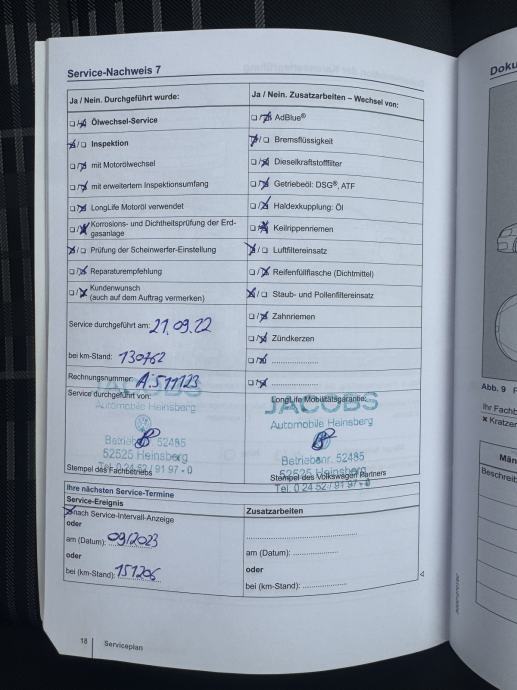 Service-Nachweis 7
Ja / Nein. Durchgeführt wurde:
Ölwechsel-Service
Inspektion
mit Motorölwechsel
mit erweitertem Inspektionsumfang
LongLife Motoröl verwendet
Korrosions- und Dichtheitsprüfung der Erd-
gasanlage
Prüfung der Scheinwerfer-Einstellung
Reparaturempfehlung
Kundenwunsch
(auch auf dem Auftrag vermerken)
Service durchgeführt am: 21.09.22
bei km-Stand: 130762
Rechnungsnummer: A.511123
Service durchgeführt von:
JACOBS
Automobile Heinsberg
Betriebsnr. 52485
52525 Heinsberg
Tel. 0 24 52 / 91 97 - 0
Stempel des Fachbetriebs
Ja / Nein. Zusatzarbeiten – Wechsel von:
AdBlue®
Bremsflüssigkeit
Dieselkraftstofffilter
Getriebeöl: DSG®, ATF
Haldexkupplung: Öl
Keilrippenriemen
Luftfiltereinsatz
Reifenfüllflasche (Dichtmittel)
Staub- und Pollenfiltereinsatz
Zahnriemen
Zündkerzen
LongLife Mobilitätsgarantie:
JACOBS
Automobile Heinsberg
Betriebsnr. 52485
52525 Heinsberg
Tel. 0 24 52 / 91 97 - 0
Stempel des Volkswagen Partners
Ihre nächsten Service-Termine
Service-Ereignis
nach Service-Intervall-Anzeige
oder
am (Datum): 09/2023
oder
bei (km-Stand): 151206
Zusatzarbeiten
am (Datum):
oder
bei (km-Stand):
18 Serviceplan
Doku
Abb. 9
Ihr Fachb
× Kratzer
Män
Beschreib